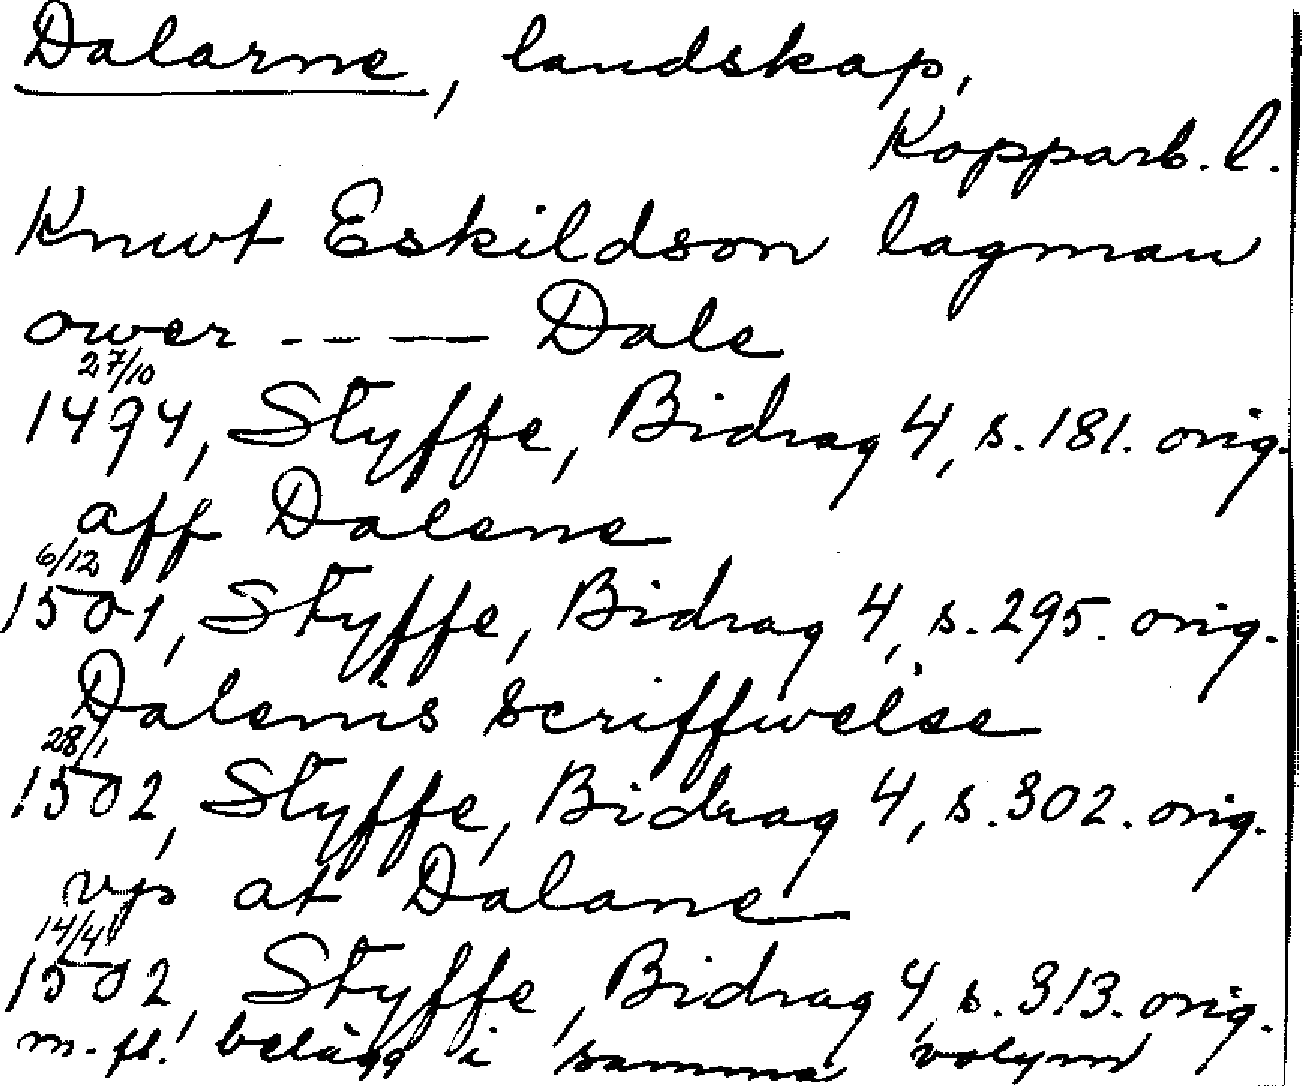 Dalarne, landskap,
Kopparb. l.
Knwt Eskildson lagman
ower ---- Dale
27/10
1494, Styffe, Bidrag 4, s. 181. orig.
aff Dalene
6/12
1501, Styffe, Bidrag 4, s. 295. orig.
Dalenis scriffwelse
28/1
1502, Styffe, Bidrag 4, s. 302. orig.
vp at Dalane
14/4
1502, Styffe, Bidrag 4, s. 313. orig.
m. fl. belägg i samma volym